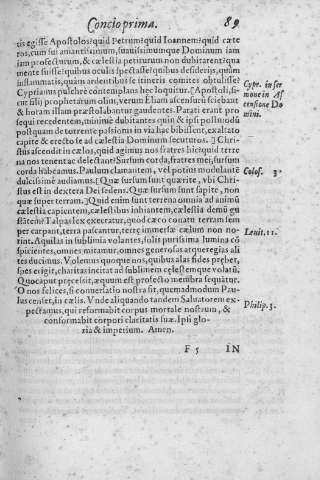 Concio prima. 89
tis egisse Apostolos? quid Petrum? quid Ioannem? quid cæte
ros, cum suum amantissimum, suauissimumque Dominum iam
iam profecturum, & cælestia petiturum non dubitarent? qua
mente fuisse? quibus oculis spectasse? quibus desiderijs, quàm
inflammatis, quàm ardentibus se itineris comites obtulisse?
Cyprianus pulchrè contemplans hęc loquitur. [Apostoli, si-
cut filij prophetarum olim, verum Eliam ascensurū sciebant
& horam illam præstolabantur gaudentes. Parati erant pro
sequi recedentem, minimè dubitantes quin & ipsi postmodū
postquam de torrente passionis in via hac bibissent, exaltato
capite & erecto se ad cælestia Dominum secuturos.] Chri-
stus ascendit in cælos, quid agimus nos fratres hìc? quid terre
na nos tenent ac delectant? Sursum corda, fratres mei, sursum
corda habeamus. Paulum clamantem, vel potius modulantē
dulcissimè audiamus. [Quæ sursum sunt quærite, vbi Chri-
stus est in dextera Dei sedens. Quæ sursum sunt sapite, non
quæ super terram.] Quid enim sunt terrena omnia ad animū
cælestia capientem, cælestibus inhiantem, cælestia demū gu
stātem? Talpas lex execratur, quod cæco conatu terram sem
per carpunt, terra pascuntur, terrę immersæ cælum non no-
rint. Aquilas in sublimia volantes, solis purissima lumina cō
spicientes, omnes miramur, omnes generosas atque regias ali
tes ducimus. Volemus quoque nos, quibus alas fides prębet,
spes erigit, charitas incitat ad sublimem cęlestemque volatū.
Quò caput pręcessit, æquum est profectò membra sequatur.
O nos felices, si conuersatio nostra sit, quemadmodum Pau-
lus censet, in cælis. Vnde aliquando tandem Saluatorem ex-
pectamus, qui reformabit corpus mortale nostrum, &
conformabit corpori claritatis suæ. Ipsi glo-
ria & imperium. Amen.
F 5 IN
Cypr. in ser
mone in As
censione Do
mini.
Colos. 3.
Leuit. 11.
Philip. 3.